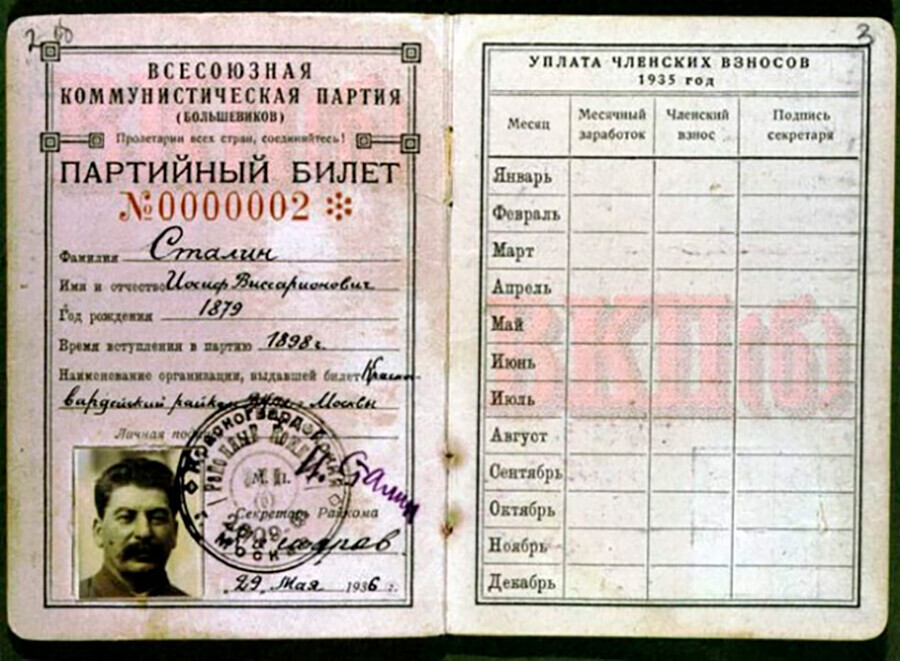 3
ВСЕСОЮЗНАЯ
КОММУНИСТИЧЕСКАЯ ПАРТИЯ
(БОЛЬШЕВИКОВ)
Пролетарии всех стран, соединяйтесь!
ПАРТИЙНЫЙ БИЛЕТ
№0000002
Фамилия Сталин
Имя и отчество Иосиф Виссарионович
Год рождения 1879
Время вступления в партию 1898 г.
Наименование организации, выдавшей билет Красно-
вардейский райком г. Москвы
Личная
И. Сталин
М. П.
Секретарь Райкома
29 Мая 1936 г.
УПЛАТА ЧЛЕНСКИХ ВЗНОСОВ
1935 год
Месяц
Месячный заработок
Членский взнос
Подпись секретаря
Январь
Февраль
Март
Апрель
Май
Июнь
Июль
Август
Сентябрь
Октябрь
Ноябрь
Декабрь
ВКП(б)